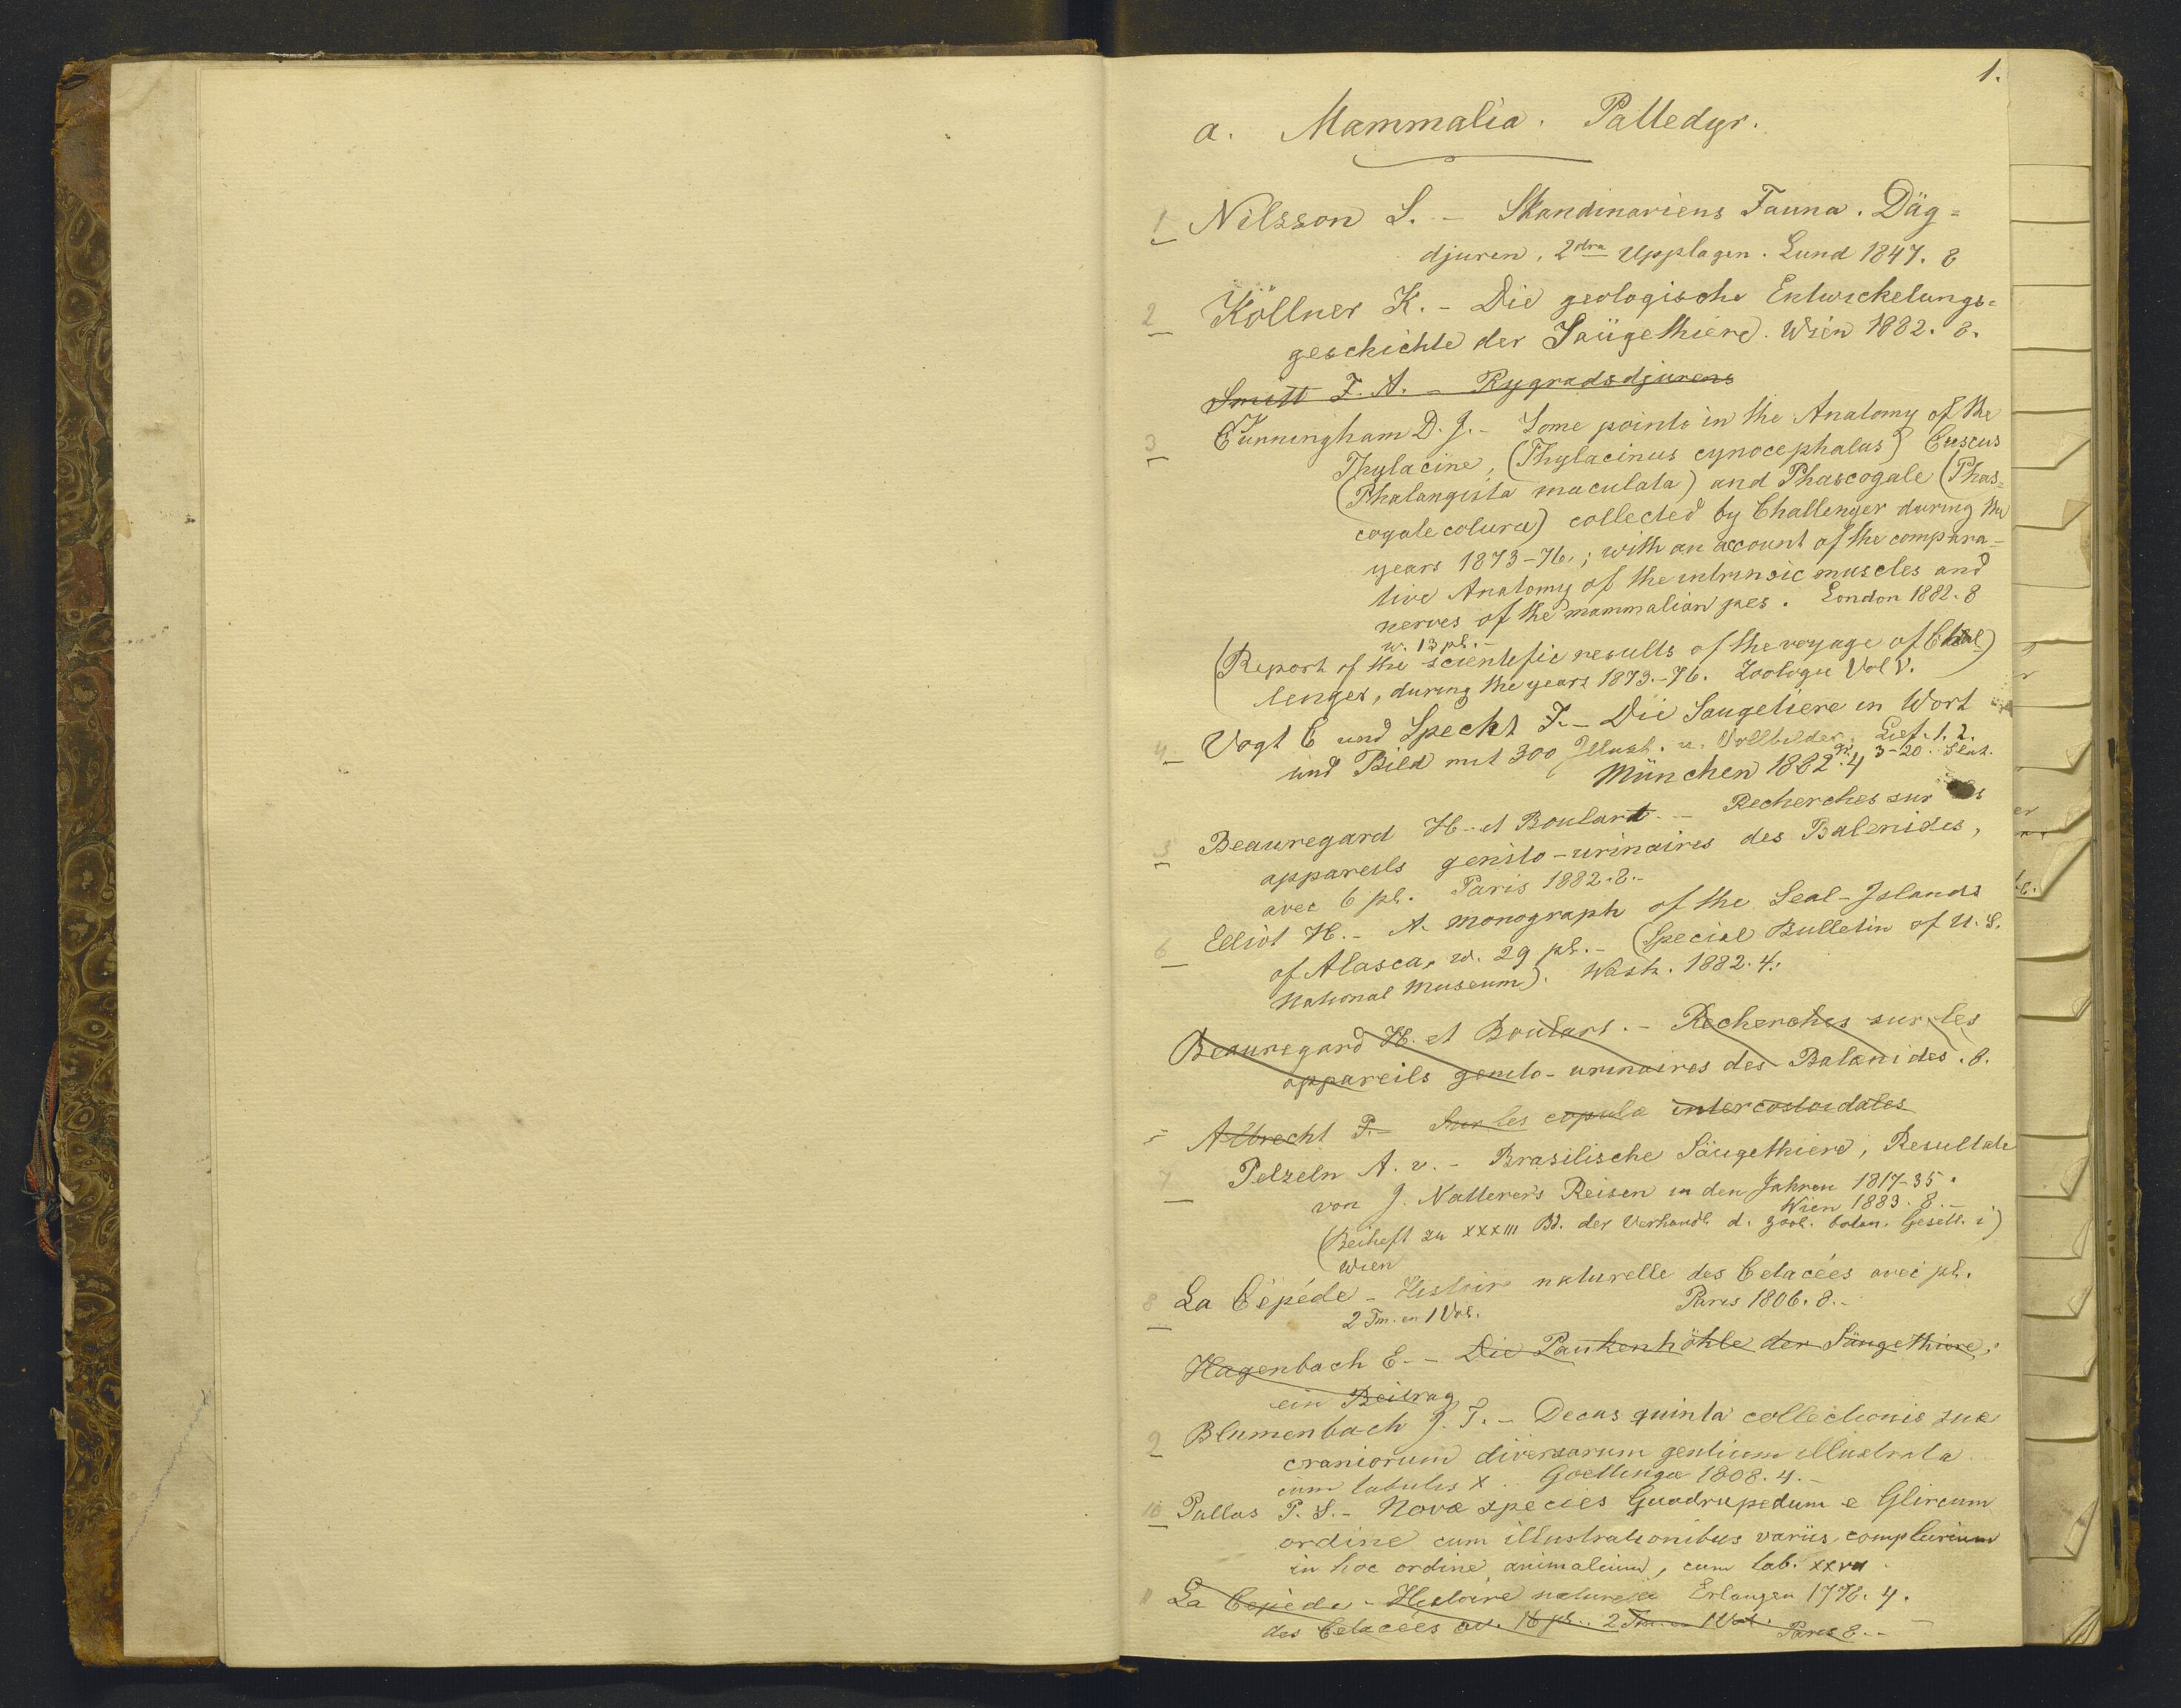 1.
a. Mammalia. Patledyr.
1 Nilsson S. - Skandinaviens Fauna. Däg=
djuren, 2dra Upplagen. Lund 1847. 8
2 Köllner K. - Die geologische Entwickelungs=
geschichte der Saügethiere. Wien 1882. 8.
Smitt F. A. - Rygradsdjurens
3 Cunningham D. J. - Some points in the Anatomy of the
Thylacine, (Thylacinus cynocephalus) Cuscus
(Phalangista maculata) and Phascogale (Phas=
cogale colura) collected by Challenger during the
years 1873-76.; with an account of the compara-
tive Anatomy of the intrinsic muscles and
nerves of the mammalian pes. London 1882. 8
w. 13 pl. -
(Report of the scientific results of the voyage of Chal)
lenger, during the years 1873.-76. Zoologie Vol V.
4 Vogt C und Specht F. - Die Saugetiere in Wort
und Bild mit 300 Illust. u. Vollbilder. Lief. 1. 2.
München 1882. gr. 4 3-20.
5 Beauregard H. et Boulart. - Recherches sur
appareils genito-urinaires des Balenides,
avec 6 pl. Paris 1882. 8. -
6 Elliot H. - A monograph of the Seal-Islands
of Alasca, w. 29 pl. - (Special Bulletin of U. S.
National Museum). Wash. 1882. 4.
Beauregard H. et Boulart. - Recherches sur les
appareils genito-urinaires des Balænides. 8.
Albrecht P. - Sur les copula intercostoidales
7 Pelzeln A. v. - Brasilische Säugethiere, Resultate
von J. Natterer's Reisen in den Jahren 1817-35.
Wien 1883. 8. -
(Beiheft zu XXXIII Bd. der Verhandl. d. zool. botan. Gesell. i)
Wien
8 La Cépéde - Histoir naturelle des Cetacées avec pl.
2 Tm. en 1 Vol. Paris 1806. 8. -
Hagenbach E. - Die Paukenhöhle der Säugethiere,
ein Beitrag
9 Blumenbach J. F. - Decas quinta collectionis suæ
craniorum diversarum gentium illustrata
cum tabulis X. Goettingæ 1808. 4. -
10 Pallas P. S. - Novæ species Quadrupedum e Glirium
ordine cum illustrationibus variis complurium
in hoc ordine animalium, cum tab. XXVII
Erlangen 1778. 4.
11 La Cepède - Histoire naturelle
des Cetacées av. 16 pl. 2 Tm. en 1 Vol. Paris 8. -